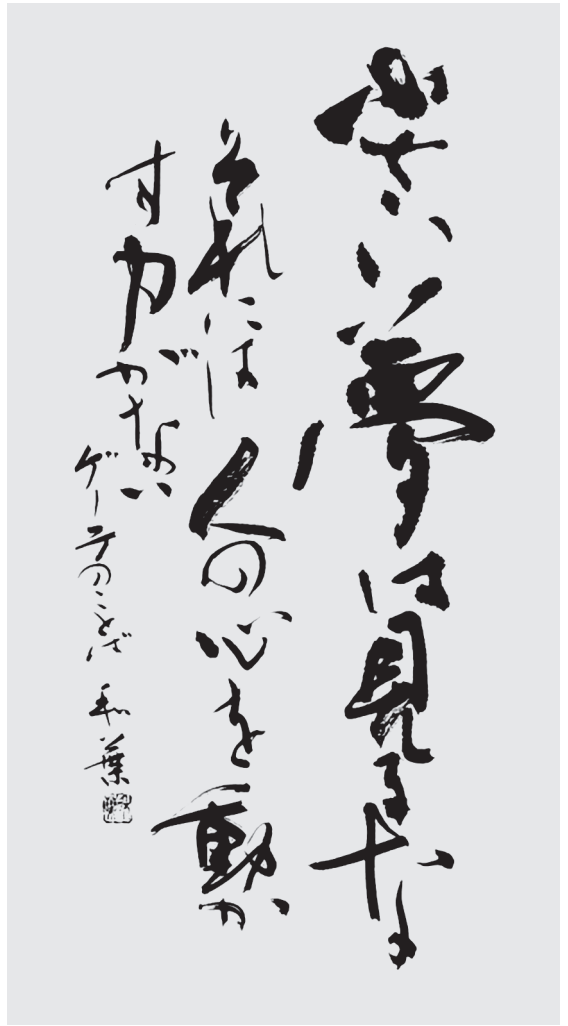 小さい夢は見るな
それには人の心を動か
す力がない
ゲーテのことば 和葉